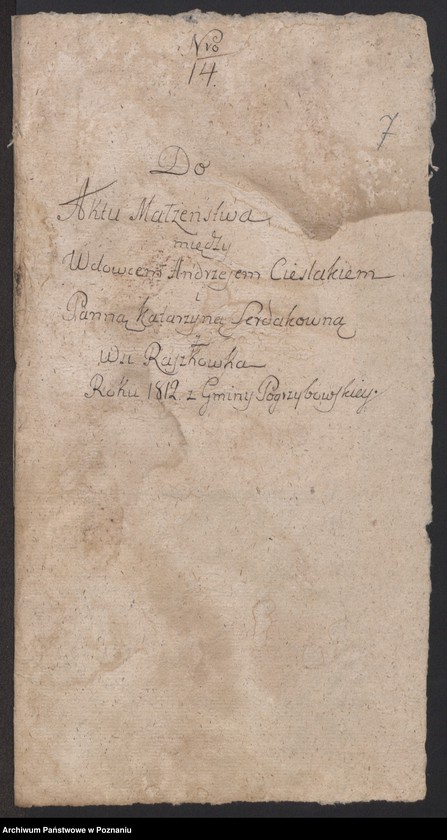 Nro
14.
7
Do
Aktu Małżeństwa
między
Wdowcem Andrzejem Cieslakiem
i
Panną Katarzyną Serdakowną
z
Wsi Raszkowka
Roku 1812 z Gminy Pogrzybowskiey.
Archiwum Państwowe w Poznaniu